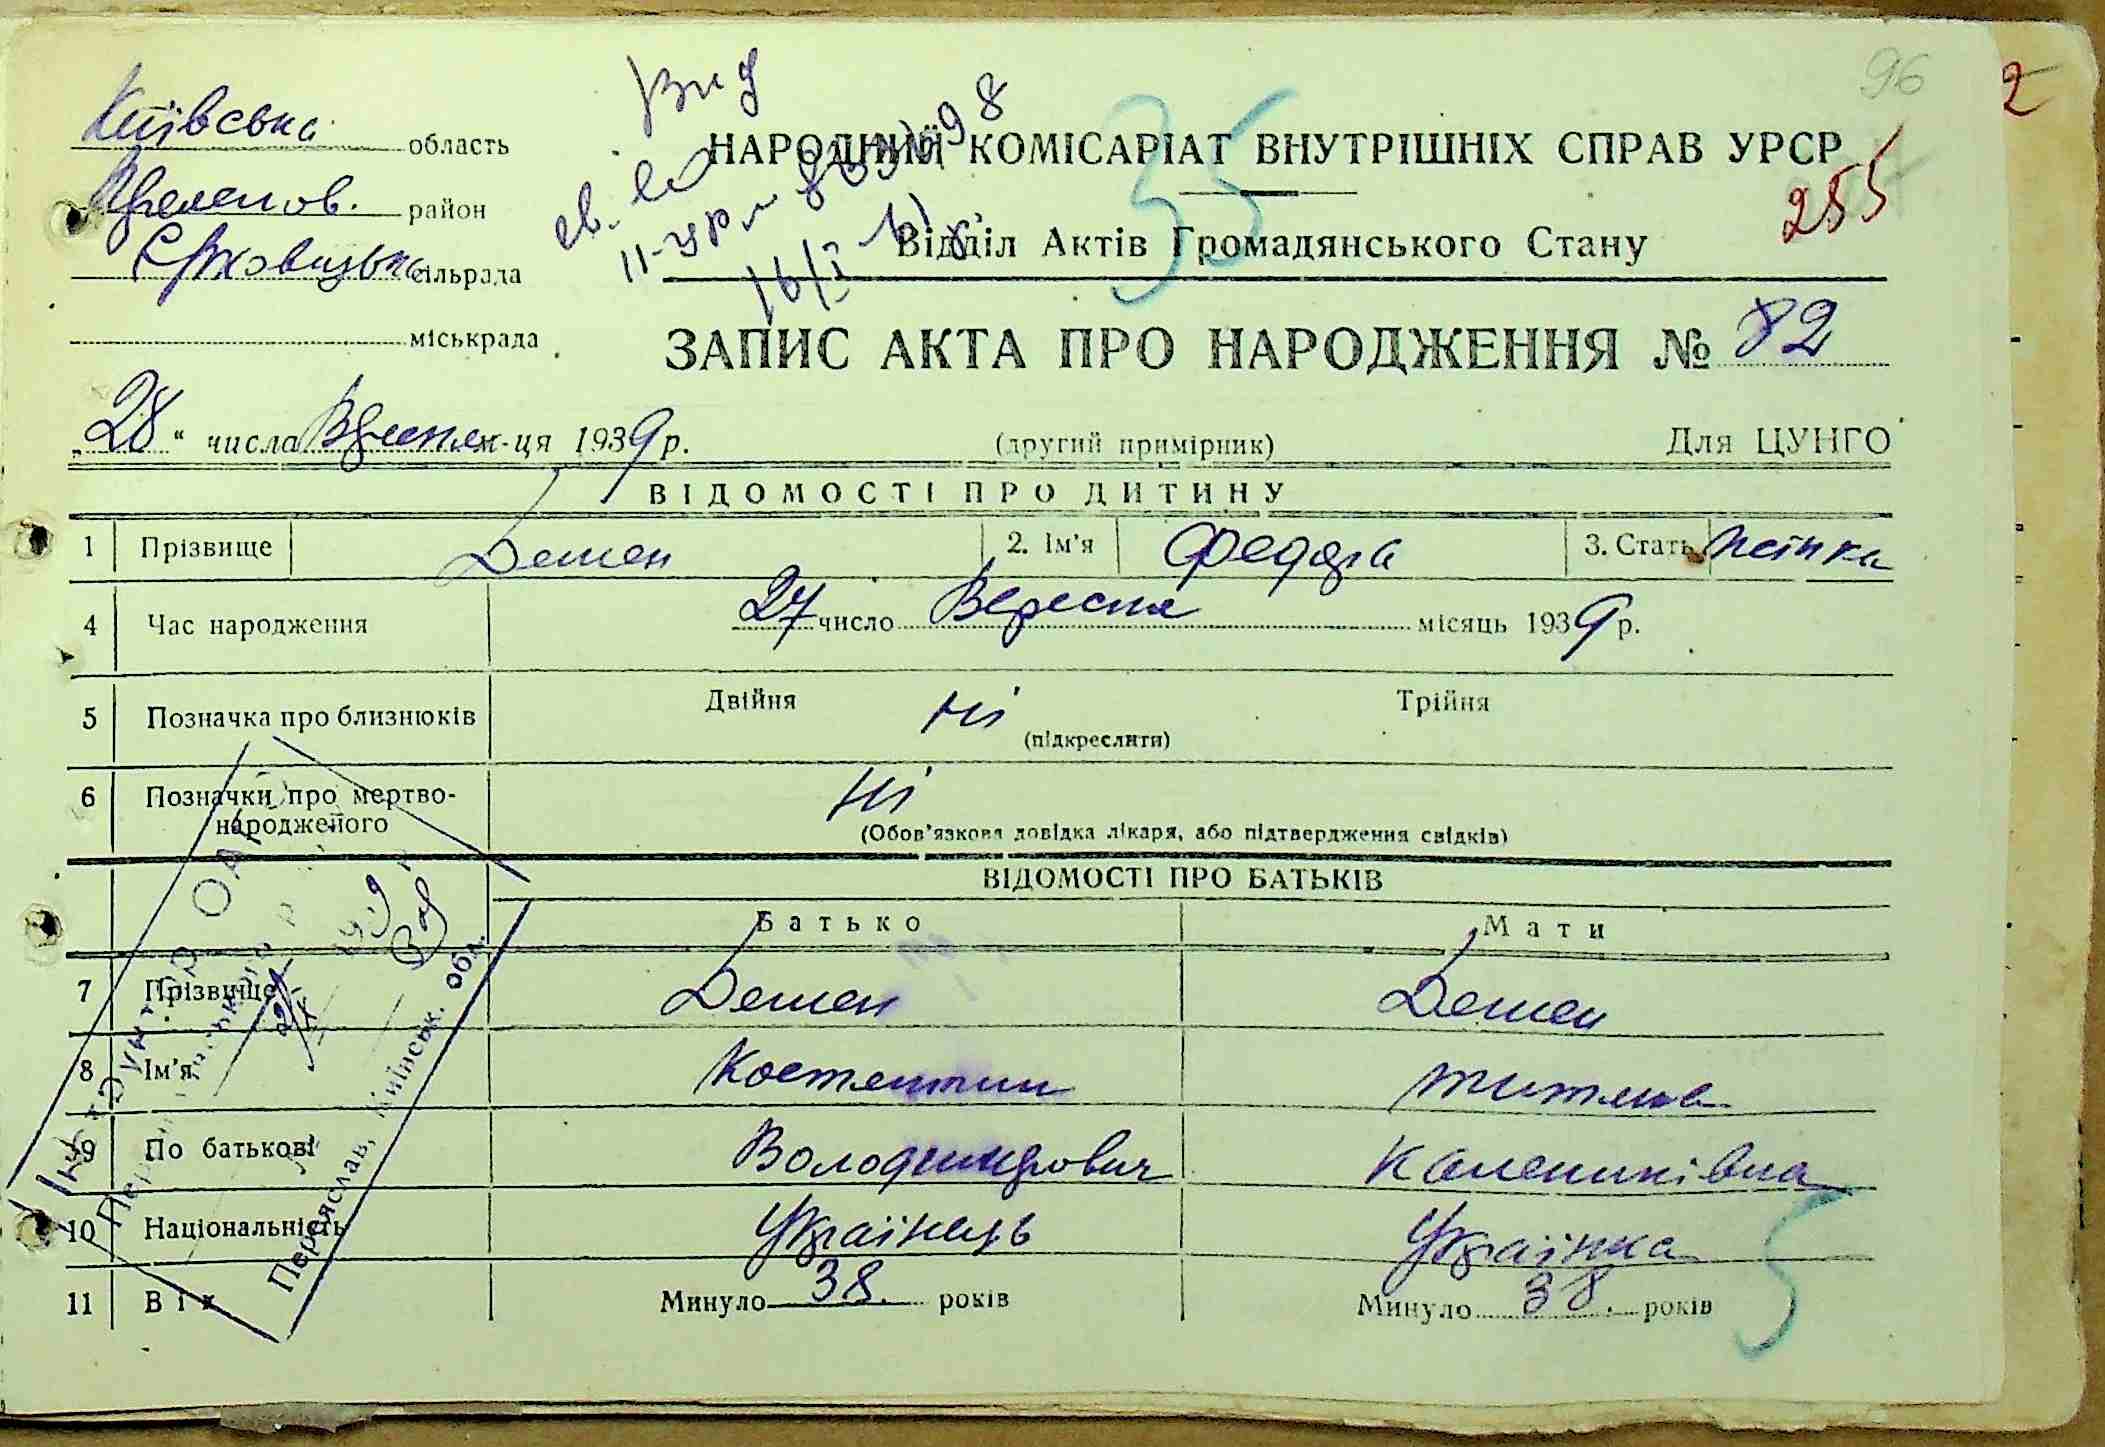 Київська область
район
Єрковецька сільрада
міськрада
Вид
НАРОДНИЙ КОМІСАРІАТ ВНУТРІШНІХ СПРАВ УРСР
35
96
2
255
Відділ Актів Громадянського Стану
16/I
ЗАПИС АКТА ПРО НАРОДЖЕННЯ № 82
„28“ числа Вересня м-ця 1939 р.
(другий примірник)
Для ЦУНГО
ВІДОМОСТІ ПРО ДИТИНУ
1 Прізвище Демен 2. Ім'я Федора 3. Стать жінка
4 Час народження 27 число Вересня місяць 1939 р.
5 Позначка про близнюків Двійня ні Трійня
(підкреслити)
6 Позначки про мертво-
народженого ні
(Обов'язкова довідка лікаря, або підтвердження свідків)
ВІДОМОСТІ ПРО БАТЬКІВ
Батько Мати
7 Прізвище Демен Демен
8 Ім'я Костентин
9 По батькові Володимирович Калениківна
10 Національність Українець Українка
11 Вік Минуло 38 років Минуло 38 років
5
Переяслав, Київськ. обл.